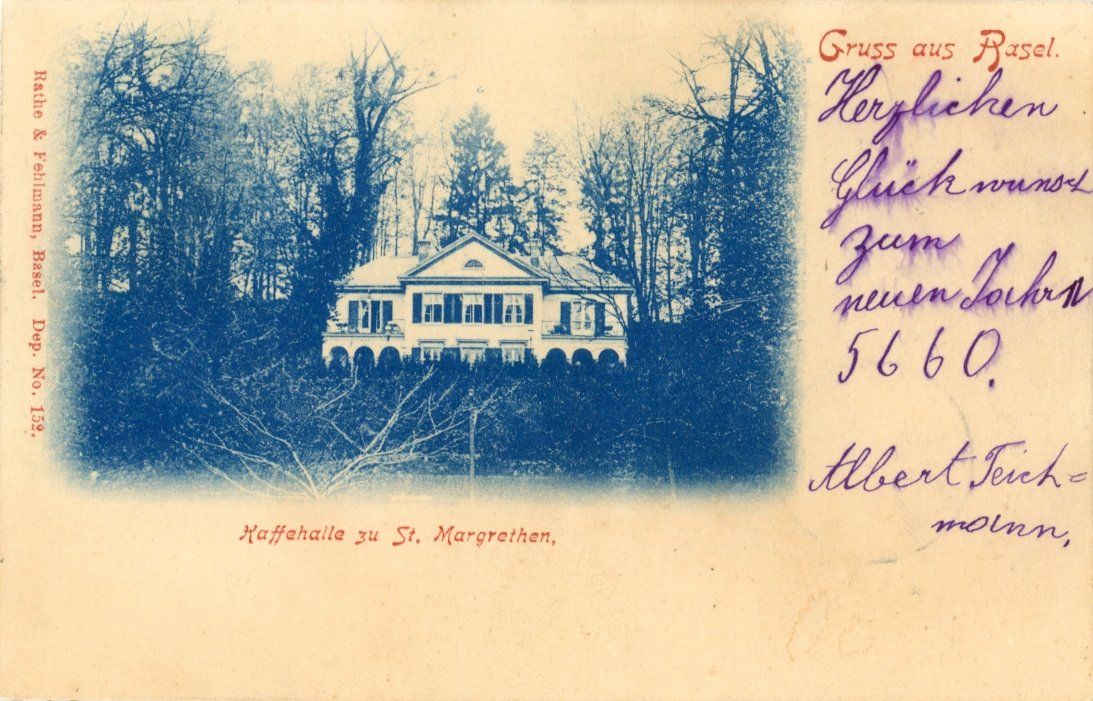 Gruss aus Basel.
Herzlichen
Glückwunsch
zum
neuen Jahr
5660.
Albert Teich=
mann,
Kaffehalle zu St. Margrethen,
Rathe & Fehlmann, Basel. Dep. No. 152.